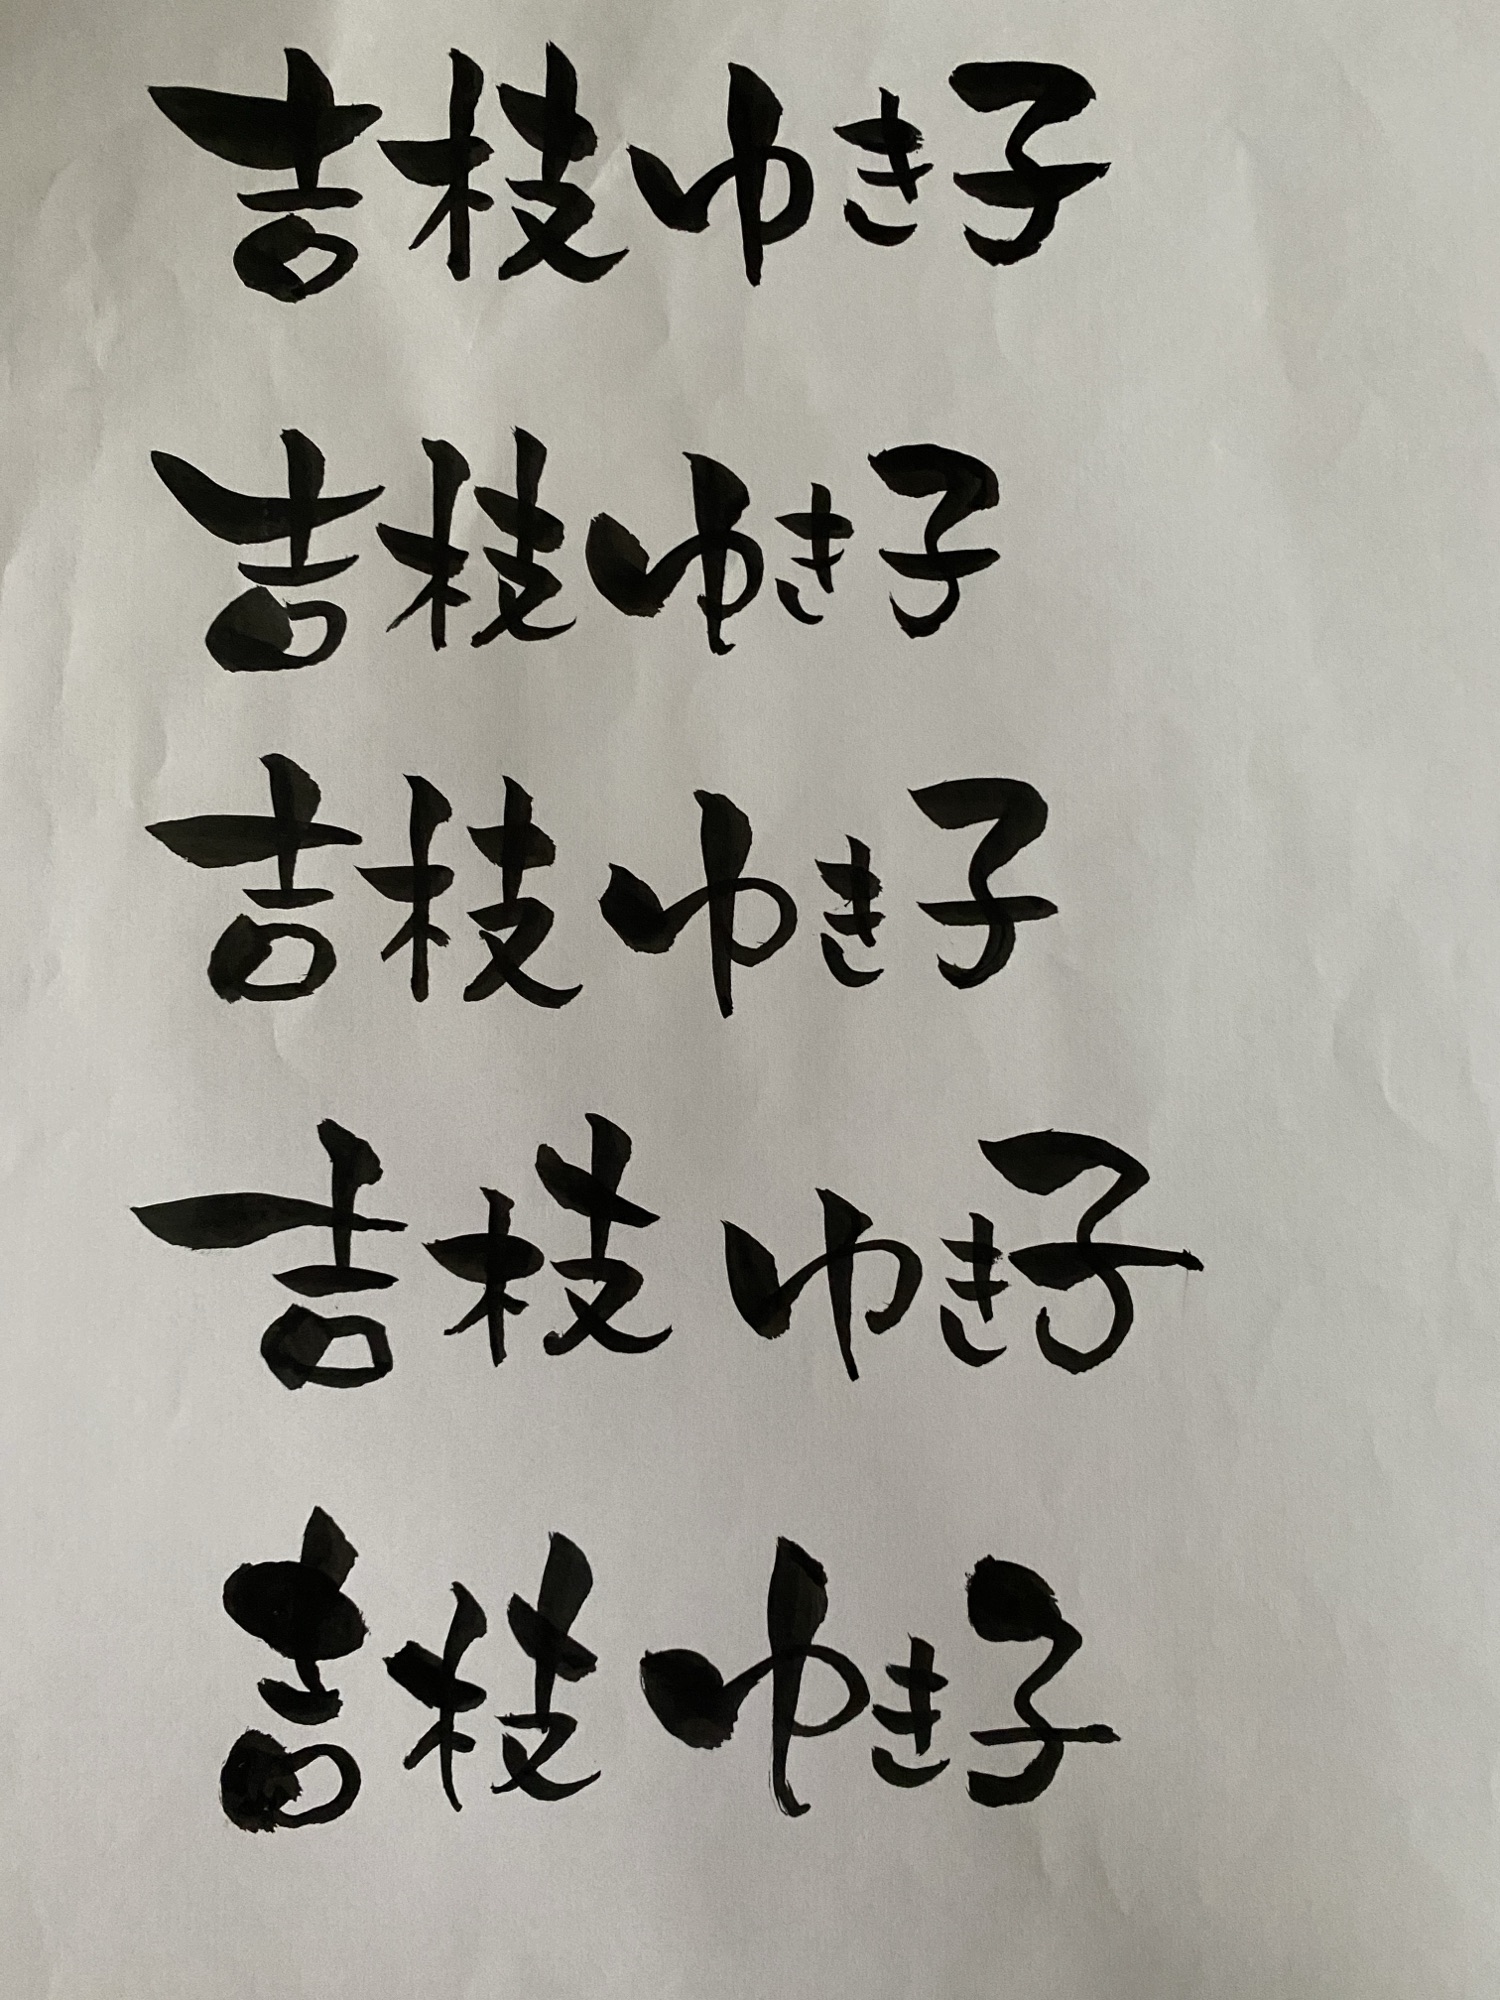 吉枝ゆき子
吉枝ゆき子
吉枝ゆき子
吉枝ゆき子
吉枝ゆき子